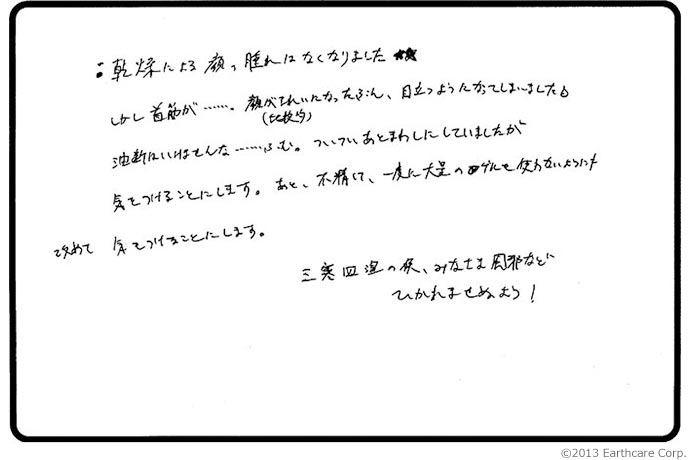 ：乾燥による顔の腫れはなくなりました★☆
しかし首筋が……。顔がきれいになったぶん、目立つようになってしまいました
(比較的)
油断はいけませんな……ふむ。ついついあとまわしにしていましたが
気をつけることにします。あと、不精して、一度に大量のゲルを使わないように
改めて 気をつけることにします。
三寒四温の候、みなさま風邪など
ひかれませぬよう!
©2013 Earthcare Corp.